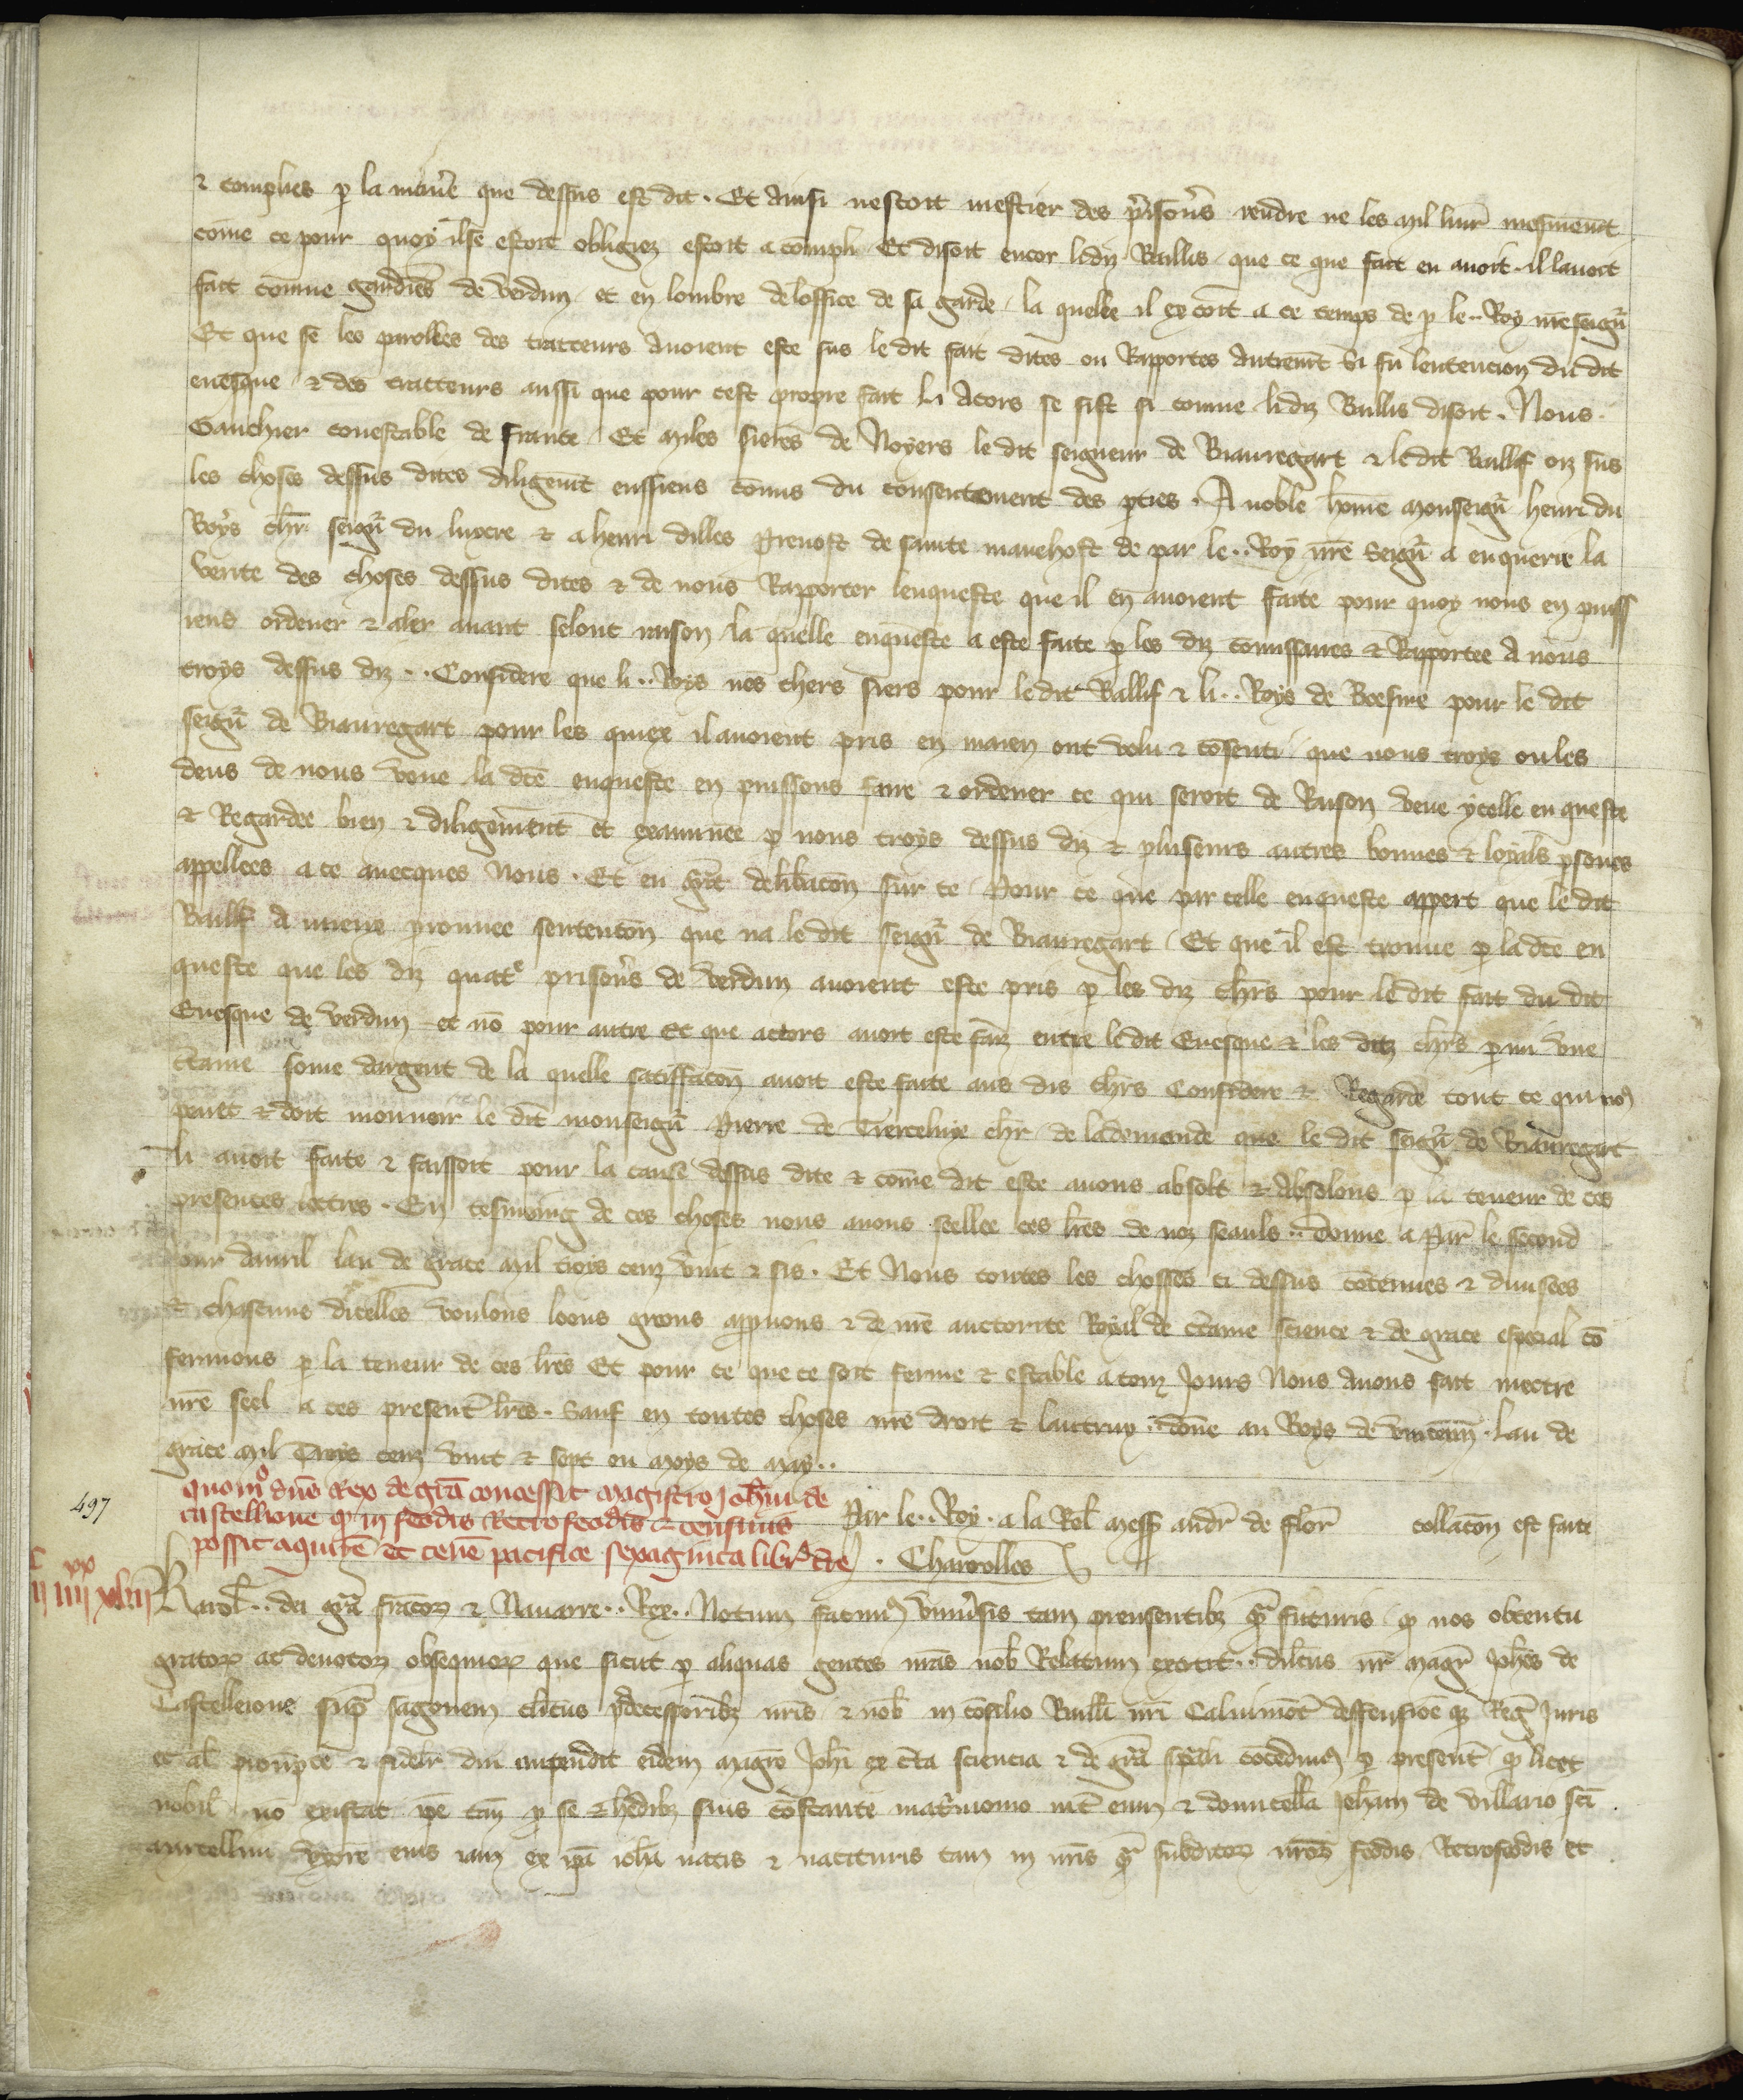 & complies p la mañe que dessus est dit. Et Ainsi nestoit mestier des p̃isoñs rendre ne les mil liur̃ mesmem̃t
cōme ce pour quoy il se estoit obligiez estoit a compli Et disoit encor lidiz Baillis que ce que fait en auoit il lauoit
fait comme gardiēs de verdun et en lombre de loffice de sa garde la quelle il excoit a ce temps de p le .. Roy nr̃e seign̄
Et que se les parolles des traiteurs Auoient este sus le dit fait dites ou Rapportes Autrem̃t si fu lentencion du dit
euesque & des traiteurs aussi que pour cest propre fait li Acors se fist si comme lidiz Baillis disoit. Nous
Gauchier conestable de france Et Miles sieres de Noyers le dit seigneur de Biauregart & le dit Baillif oiz sus
les choses dessus dites diligem̃t eussiens comis du consentement des pties. A noble hom̄e Monseign̄ henri du
Boys chr̄ seign̄ du luxere & a henri dilles Preuost de sainte manehost de par le .. Roy nr̃e Seign̄ a enquerre la
verite des choses dessus dites & de nous Rapporter lenqueste que il en auoient faite pour quoy nous en puiss
iens ordener & aler auant selont raison la quelle enqueste a este faite p les diz comissaires & Rapportee A nous
troys dessus diz .. Considere que li .. Roys nos chers siers pour le dit Ballif & li .. Roys de Boesme pour le dit
seign̄ de Biauregart pour les quiex il auoient pris en main ont volu & cōsenti que nous troys ou les
deus de nous veue la dc̃e enqueste en puissons faire & ordener ce qui seroit de Raison veue ycelle en queste
& Regardee bien & diligemment et examinee p nous troys dessus diz & pluseurs autres bonnes & loyals psones
appellees a ce auecques Nous. Et eu g̃nt delib̃acōn sur ce Pour ce que par celle enqueste appert que le dit
Baillif a miens prouuee sentencōn que na le dit seign̄ de Biauregart Et que il est trouue p la dc̃e en
queste que les diz quatͤ prisoñs de verdun auoient este pris p les diz chr̃s pour le dit fait du dit
Euesque de verdun et nō pour autre Et que acors auoit este faiz entre le dit Euesque & les ditz chr̃s parmi vne
c̃taine some dargent de la quelle satiffacōn auoit este faite aus dis chr̃s Considere & Regarde tout ce qui noꝰ
peuet & doit mouuoir le dit monseign̄ Pierre de Tierceliue chr̄ de la demande que le dit seign̄ de Biauregart
li auoit faite & faissoit pour la cause dessus dite & cōme dit este auons absolt & Absolons p la teneur de ces
presentes lettres. En tesmoing de ces choses nous auons seellee ces lr̃es de noz seauls .. donne a Par̃ le second
iour dauril lan de grace Mil trois cenz vint & sis. Et Nous toutes les chosses ci dessus cōtenues & diuisees
& chascune dicelles voulons loons greons appuons & de nr̃e auctorite Royal de c̃taine science & de grace especial cō
fermons p la teneur de ces lr̃es Et pour ce que ce soit ferme & estable a touz Jours Nous Auons fait mettre
nr̃e seel a ces present̃ lr̃es. Sauf en toutes choses nr̃e droit & lautruy. donē au Boys de vincenn̄. lan de
grace Mil Troys cenz vint & sept ou Moys de May ..
497
quomͦ dn̄s Rex de gr̄a concessit magistro Joh̃ni de
castellione qͥ in feodis Retrofeodis & censiuis
possit aquirē et tenē pacifice sexaginta libr̃ t̃re
Par le .. Roy. a la Rel̄ Mess̄ Andr̃ de flor̄ collacōn est faite
. Charrolles
IIᶜ IIIIˣˣ XLIII
Karol̄ .. dei gr̄a francoꝝ & Nauarre .. Rex .. Notum facimꝰ vniu̓sis tam prensentibꝫ qͣ futuris qͥ nos obtentu
gratoꝝ ac deuotoꝝ obsequioꝝ que sicut p aliquas gentes nr̃as nob̄ Relatum extitit .. dil̃cus nr̄ Magr̄ Joh̃es de
Castelleione sup̄ sagonem cl̃icus p̃decessoribꝫ nr̃is & nob̄ in cōsilio Bailli nr̃i Caluimōt̃ deffensiōe qꝫ Reg̃ Juris
et al̄ prompte & fidelr̄ diu impendit eidem Magr̃o Joh̃i ex c̃ta sciencia & de gr̄a sp̃ali cōcedimꝰ p present̃ qͥ licet
nobil̄ nō existat ip̃e tam̃ p se & h̃edibꝫ suis cōstante mat̓monio int̃ eum & domicell̄a Joh̃am de villario sc̃i
Marcellini vxorē eius iam ex ip̃a ioh̃a natis & nascituris tam in nr̃is qͣ subditoꝝ nr̃oꝝ feodis Retrofeodis Et